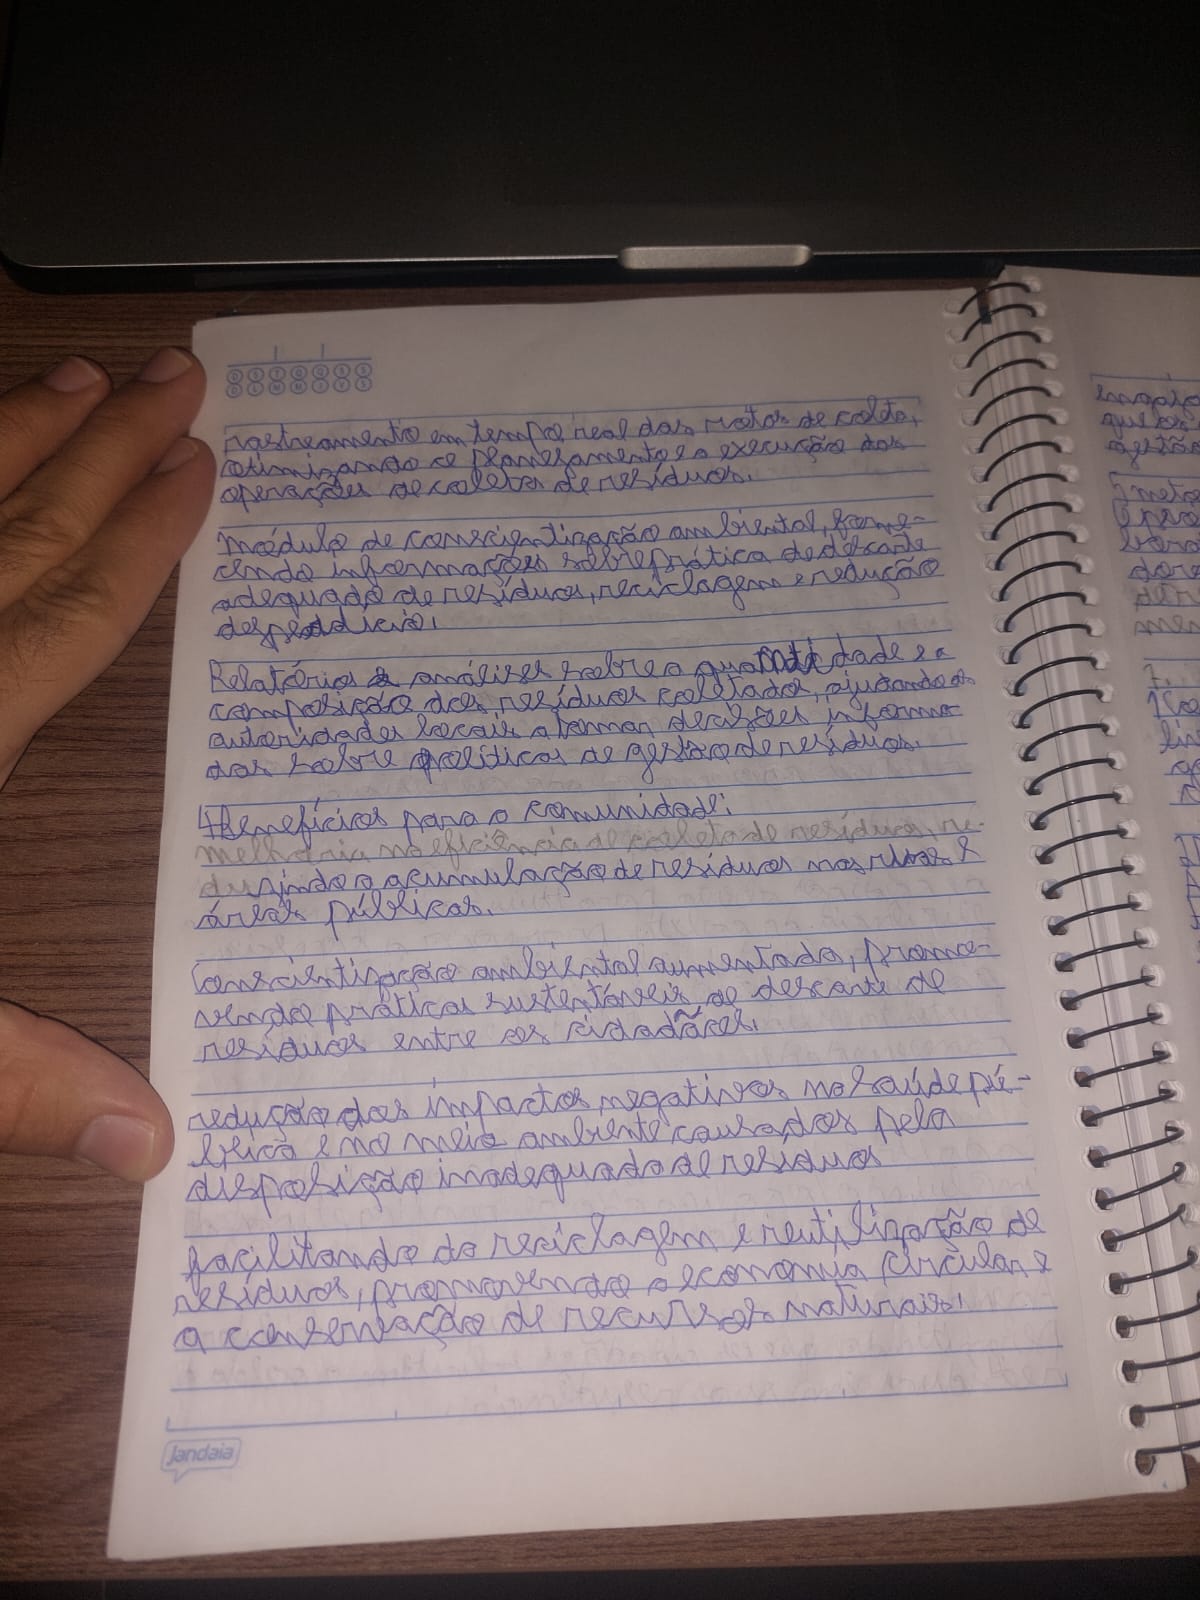 D S T Q Q S S
D L M M J V S
rastreamento em tempo real das rotas de coleta,
otimizando o planejamento e a execução das
operações de coleta de resíduos.
módulo de conscientização ambiental, forne-
cendo informações sobre prática de descarte
adequado de resíduos, reciclagem e redução
desperdício.
Relatórios & análises sobre a quantidade e a
composição dos resíduos coletados, ajudando as
autoridades locais a tomar decisões informa
das sobre políticas de gestão de resíduos.
4 Benefícios para a comunidade:
melhoria na eficiência de coleta de resíduos, re-
duzindo a acumulação de resíduos nas ruas e
áreas públicas.
Conscientização ambiental aumentada, promo-
vendo práticas sustentáveis de descarte de
resíduos entre os cidadãoes.
redução dos impactos negativos na saúde pú-
blica e no meio ambiente causados pela
disposição inadequada de resíduos
facilitando da reciclagem e reutilização de
resíduos, promovendo a economia circular e
a conservação de recursos naturais.
Jandaia